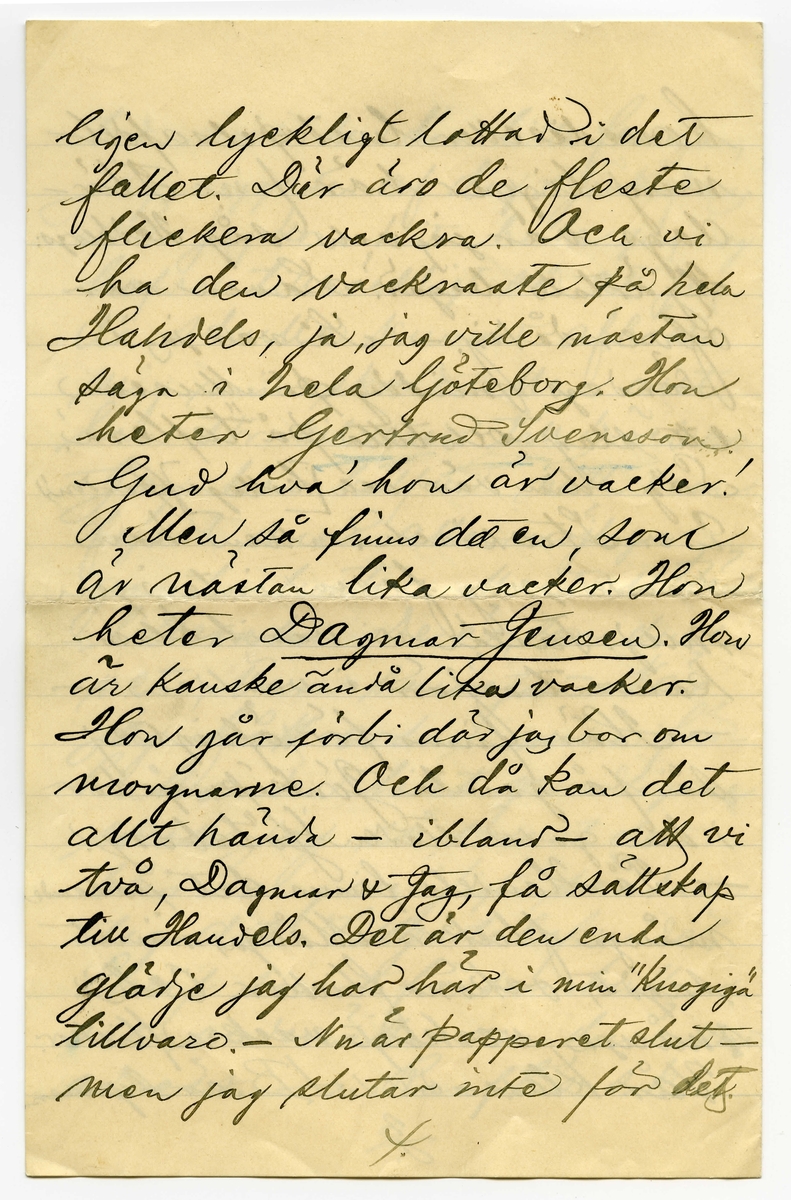 ligen lyckligt lottad i det
fallet. Där äro de fleste
flickera vackra. Och vi
ha den vackraste på hela
Handels, ja, jag ville nästan
säga i hela Göteborg. Hon
heter Gertrud Svensson.
Gud hva' hon är vacker!
Men så finns dä en, som
är nästan lika vacker. Hon
heter Dagmar Jensen. Hon
är kanske ändå lika vacker.
Hon går förbi där jag bor om
morgnarne. Och då kan det
allt hända – ibland – att vi
två, Dagmar & Jag, få sällskap
till Handels. Det är den enda
glädje jag har här i min "Knogiga"
tillvaro. – Nu är papperet slut –
men jag slutar inte för det.